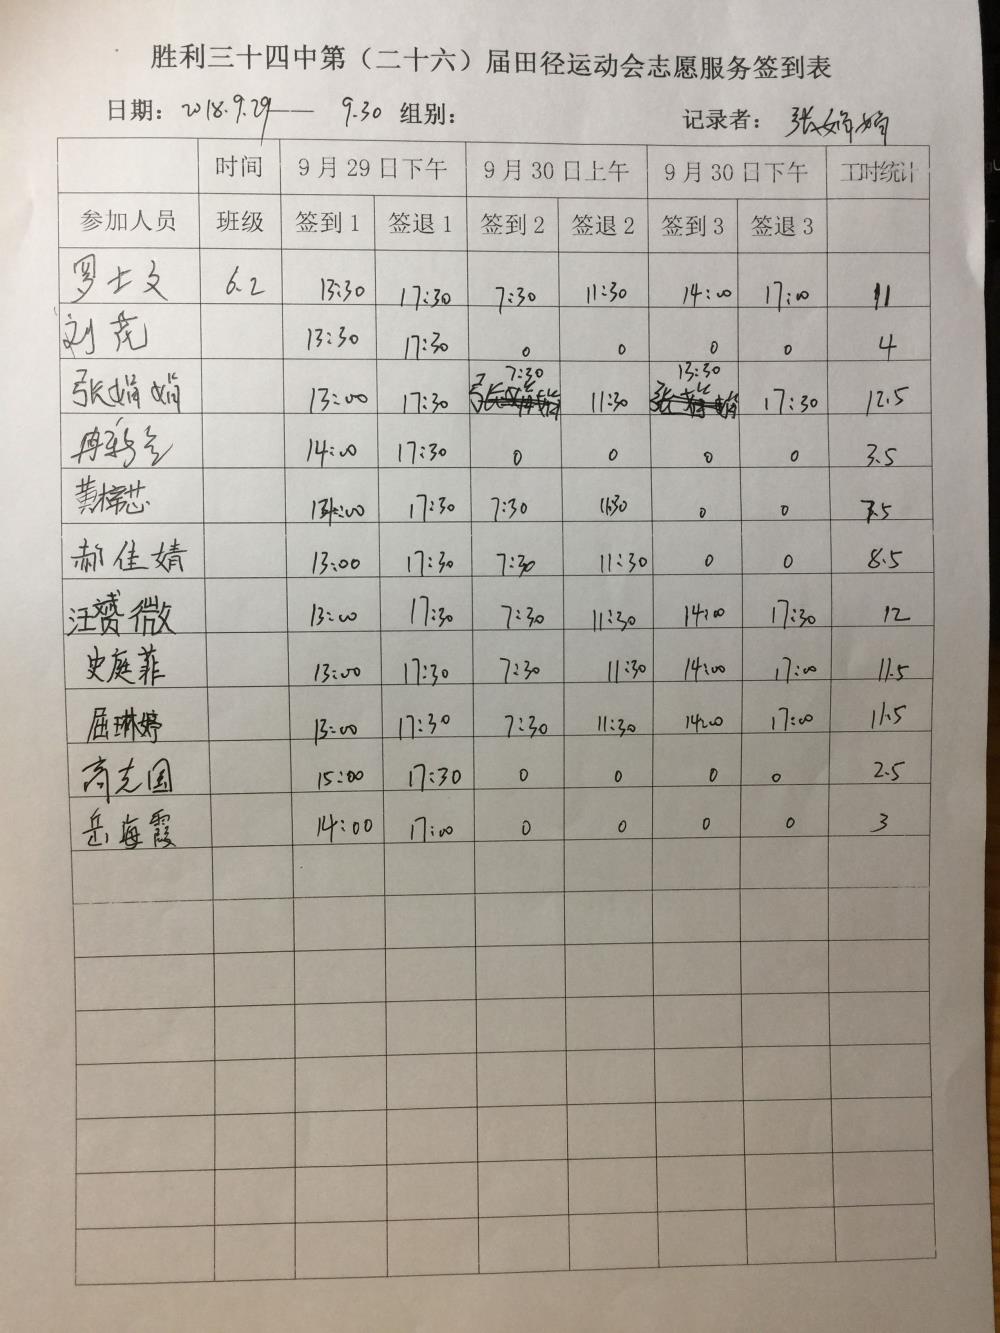 胜利三十四中第（二十六）届田径运动会志愿服务签到表
日期：2018.9.29—— 9.30 组别： 记录者：张娟娟
时间 9月29日下午 9月30日上午 9月30日下午 工时统计
参加人员 班级 签到1 签退1 签到2 签退2 签到3 签退3
罗士文 6.2 13:30 17:30 7:30 11:30 14:00 17:00 11
刘茂 13:30 17:30 0 0 0 0 4
张娟娟 13:00 17:30 7:30 11:30 13:30 17:30 12.5
14:00 17:30 0 0 0 0 3.5
黄梓芯 17:30 7:30 11:30 0 0 7.5
郝佳婧 13:00 17:30 7:30 11:30 0 0 8.5
汪赟微 13:00 17:30 7:30 11:30 14:00 17:30 12
史庭菲 13:00 17:30 7:30 11:30 14:00 17:00 11.5
屈琳婷 13:00 17:30 7:30 11:30 14:00 17:00 11.5
高克国 15:00 17:30 0 0 0 0 2.5
岳海霞 14:00 17:00 0 0 0 0 3